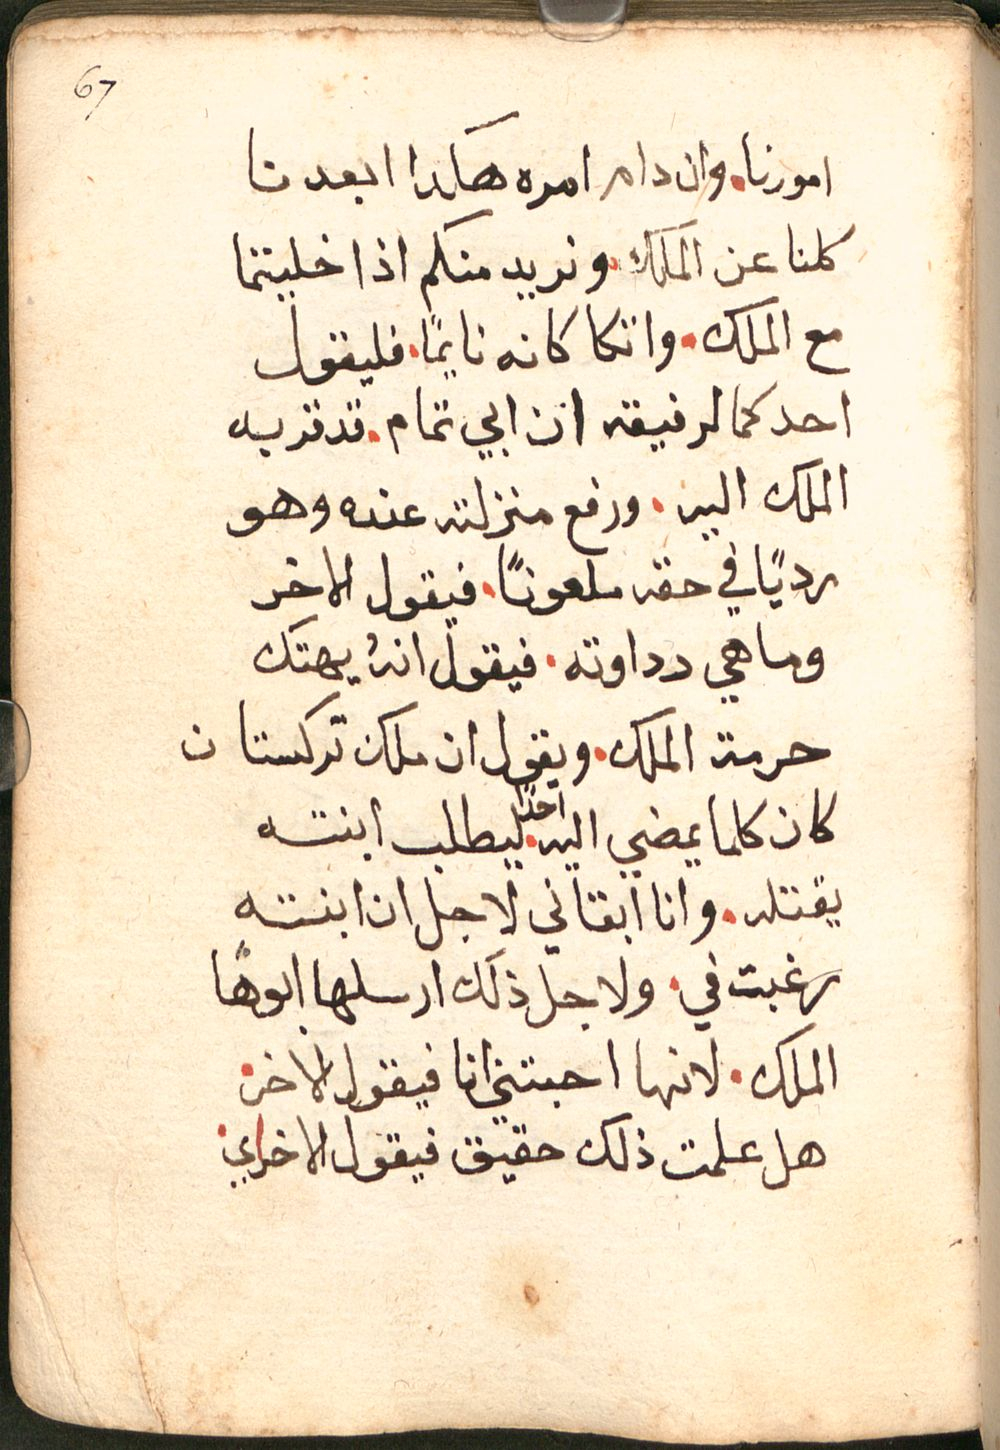 67
امورنا. وان دام امره هكدا ابعدنا
كلنا عن الملك. ونريد منكم اذا خليتما
مع الملك. واتكا كانه نايمًا. فليقول
احدكما لرفيقه ان ابي تمام. قد قربه
الملك اليه. ورفع منزلته عنده وهو
رديًا في حقه ملعونًا. فيقول الاخر
وما هي رداوته. فيقول انهُ يهتك
حرمة الملك. ويقول ان ملك تركستان
كان كلما يمضي اليه احدًا. ليطلب ابنته
يقتله. وانا ابقاني لاجل ان ابنته
رغبت في. ولاجل ذلك ارسلها ابوها
الملك. لانها احبتني انا فيقول الاخر.
هل علمت ذلك حقيق فيقول الاخر اي.